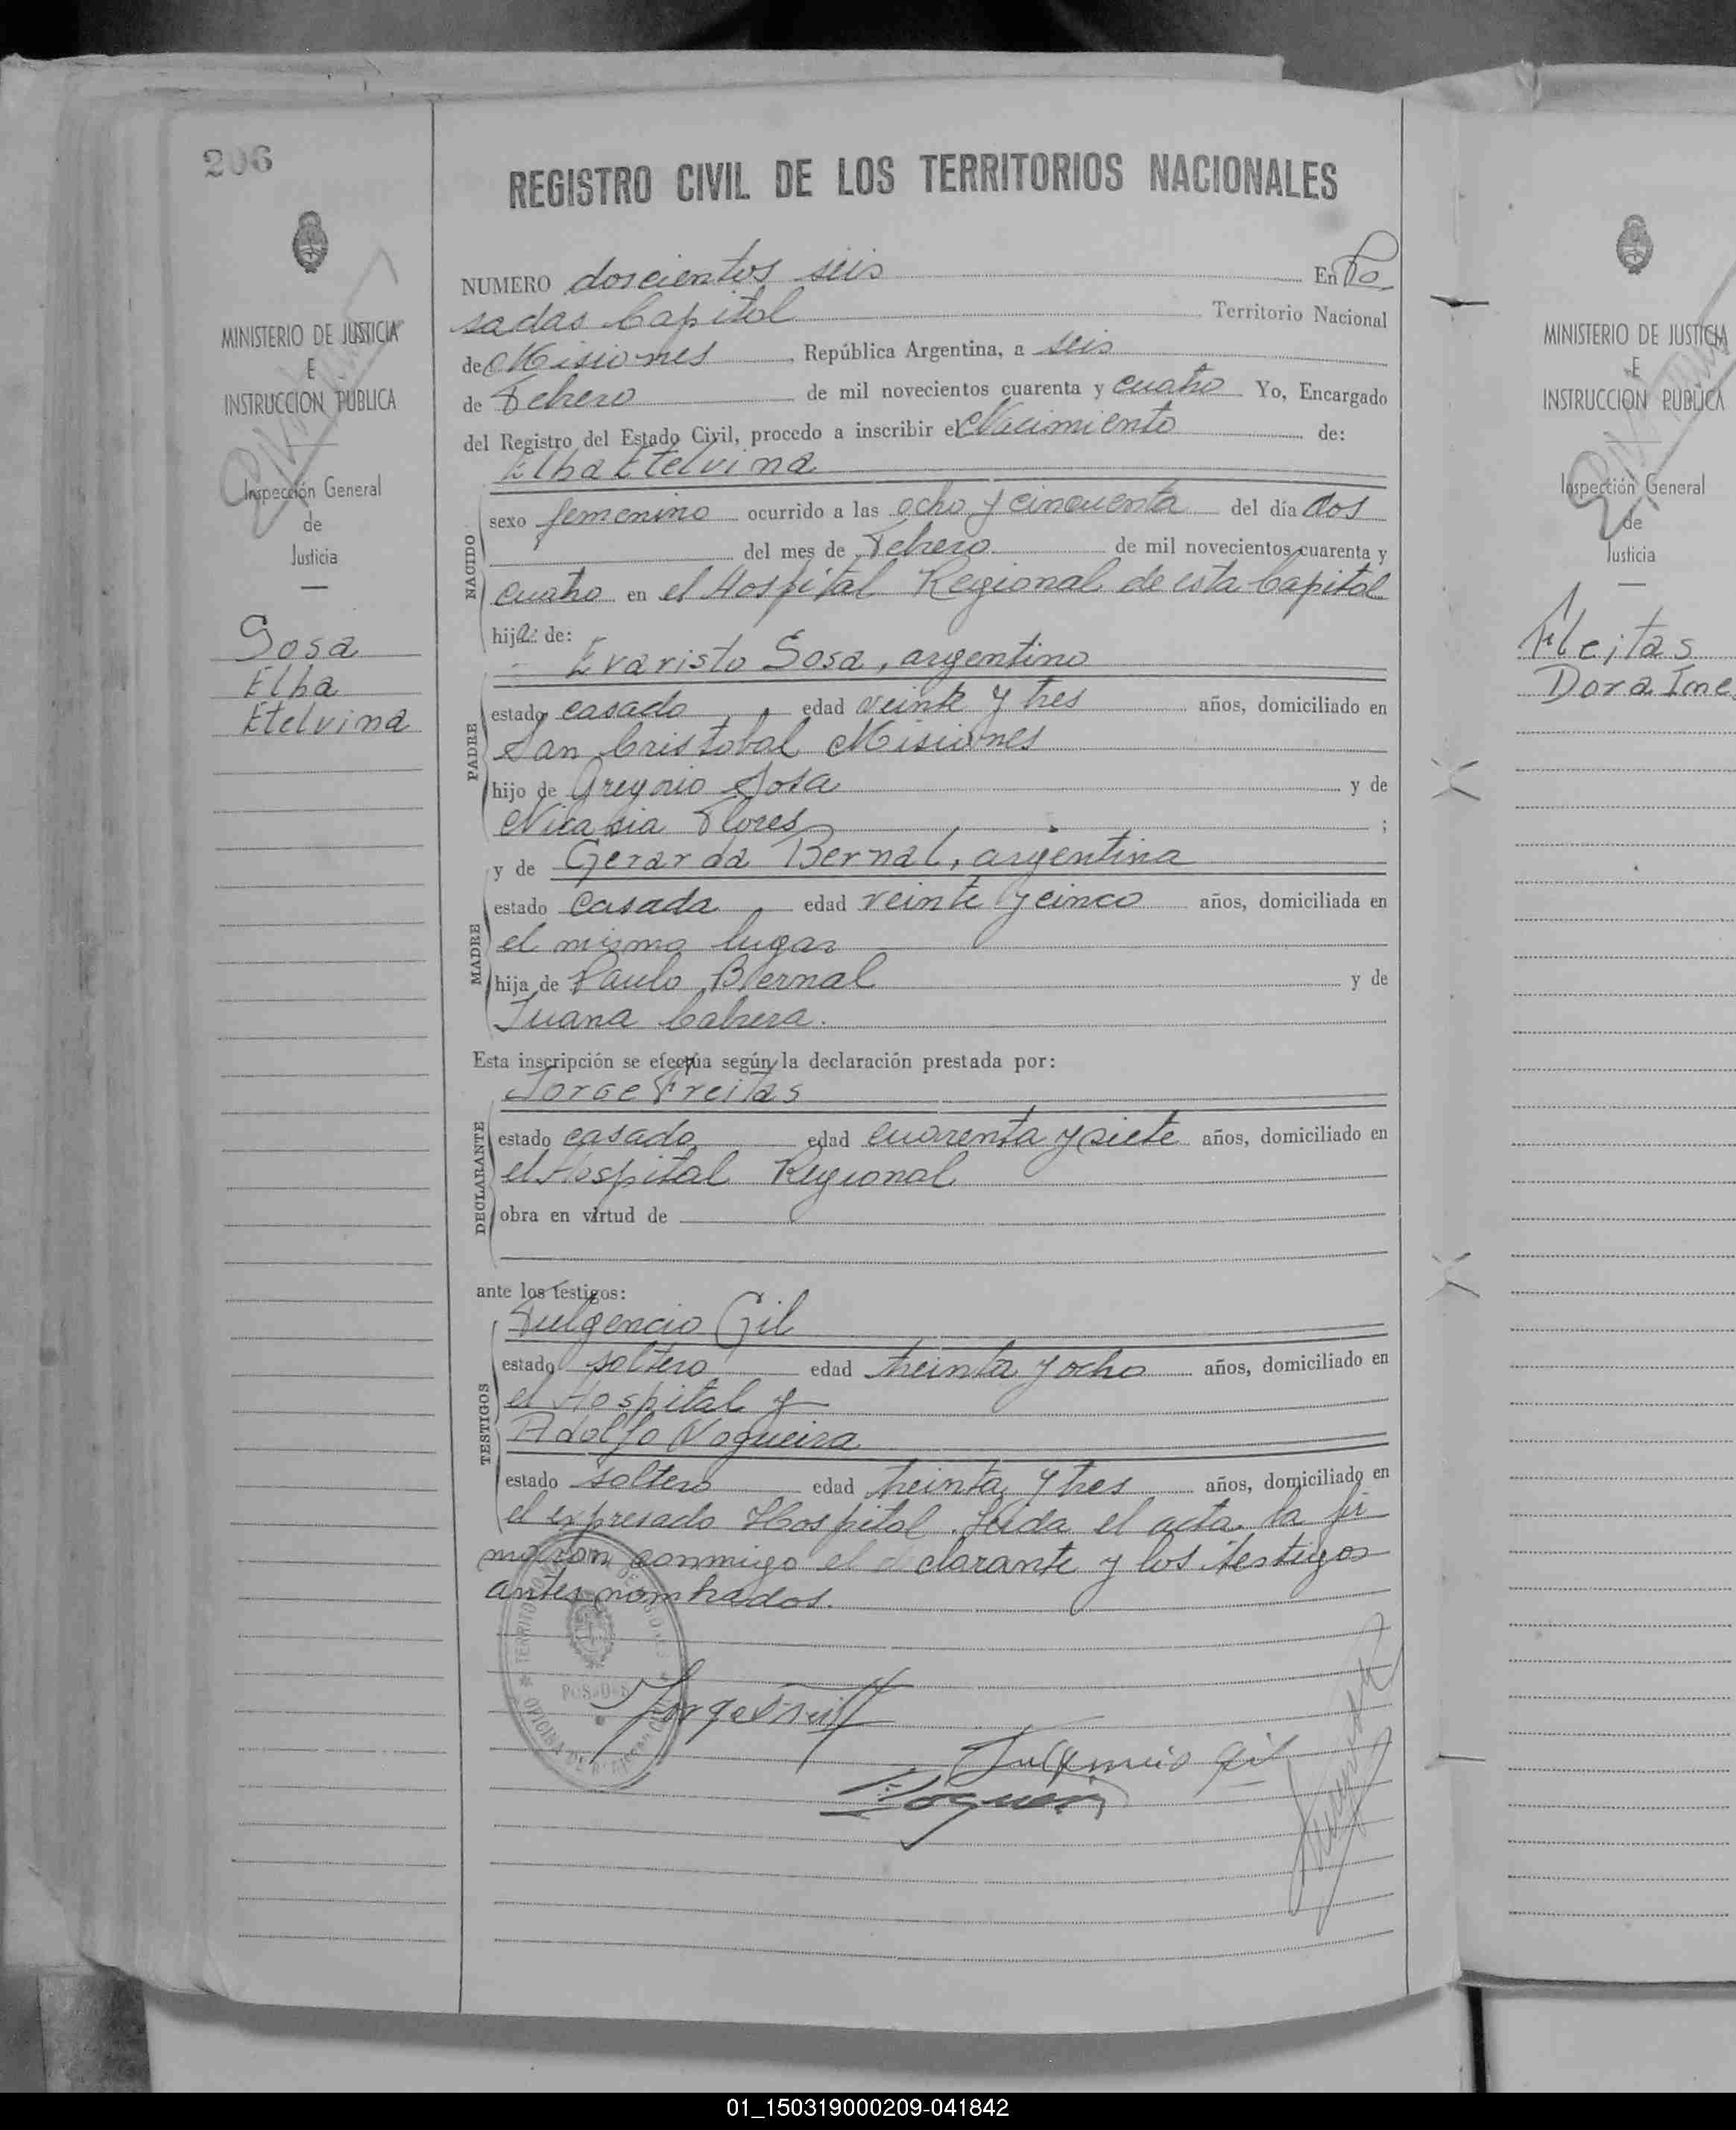 206
MINISTERIO DE JUSTICIA
E
INSTRUCCION PUBLICA
Inspección General
de
Justicia
Sosa
Elba
Etelvina
REGISTRO CIVIL DE LOS TERRITORIOS NACIONALES
NUMERO doscientos seis En Po
sadas Capital Territorio Nacional
de Misiones República Argentina, a seis
de Febrero de mil novecientos cuarenta y cuatro Yo, Encargado
del Registro del Estado Civil, procedo a inscribir el Nacimiento de:
Elba Etelvina
NACIDO
sexo femenino ocurrido a las ocho y cincuenta del día dos
del mes de Febrero de mil novecientos cuarenta y
cuatro en el Hospital Regional de esta Capital
hija de:
Evaristo Sosa, argentino
PADRE
estado casado edad veinte y tres años, domiciliado en
San Cristobal Misiones
hijo de Gregorio Sosa y de
Nicasia Flores ;
y de Gerarda Bernal, argentina
MADRE
estado casada edad veinte y cinco años, domiciliada en
el mismo lugar
hija de Paulo Bernal y de
Juana Cabrera.
Esta inscripción se efectúa según la declaración prestada por:
Jorge Freitas
DECLARANTE
estado casado edad cuarenta y siete años, domiciliado en
el Hospital Regional
obra en virtud de
ante los testigos:
Fulgencio Gil
TESTIGOS
estado soltero edad treinta y ocho años, domiciliado en
el Hospital y
Adolfo Nogueira
estado soltero edad treinta y tres años, domiciliado en
el expresado Hospital. Leida el acta la fir
maron conmigo el declarante y los testigos
antes nombrados.
POSADAS
Fulgencio Gil
Nogueira
MINISTERIO DE JUSTICIA
E
INSTRUCCION PUBLICA
Inspección General
de
Justicia
Fleitas
Dora Ine
01_150319000209-041842